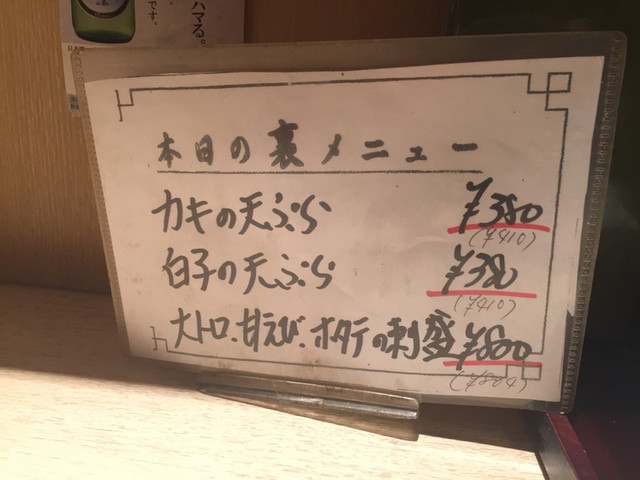 ハマる。
です。
本日の裏メニュー
カキの天ぷら ¥380
(¥410)
白子の天ぷら ¥380
(¥410)
大トロ、甘えび、ホタテの刺盛 ¥800